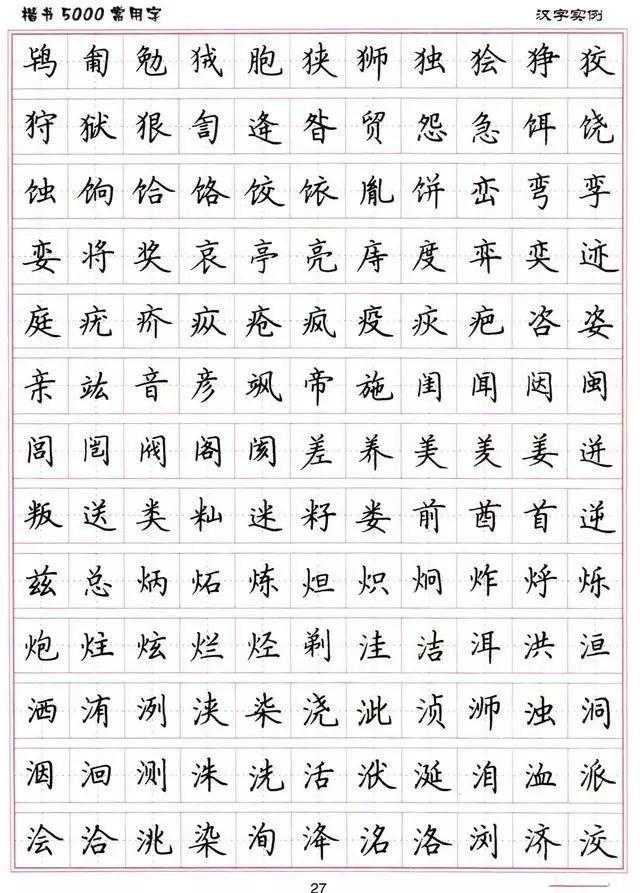 楷书5000常用字
汉字实例
鸨匍勉狨胞狭狮独狯狰狡
狩狱狠訇逄昝贸怨急饵饶
蚀饷饸饹饺饻胤饼峦弯孪
娈将奖哀亭亮庤度弈奕迹
庭疣疥疭疮疯疫疢疤咨姿
亲竑音彦飒帝施闺闻闼闽
闾闿阀阁阂差养美羑姜迸
叛送类籼迷籽娄前酋首逆
兹总炳炻炼炟炽炯炸烀烁
炮炷炫烂烃剃洼洁洱洪洹
洒洧洌浃柒浇泚浈浉浊洞
洇洄测洙洗活洑涎洎洫派
浍洽洮染洵洚洺洛浏济洨
27